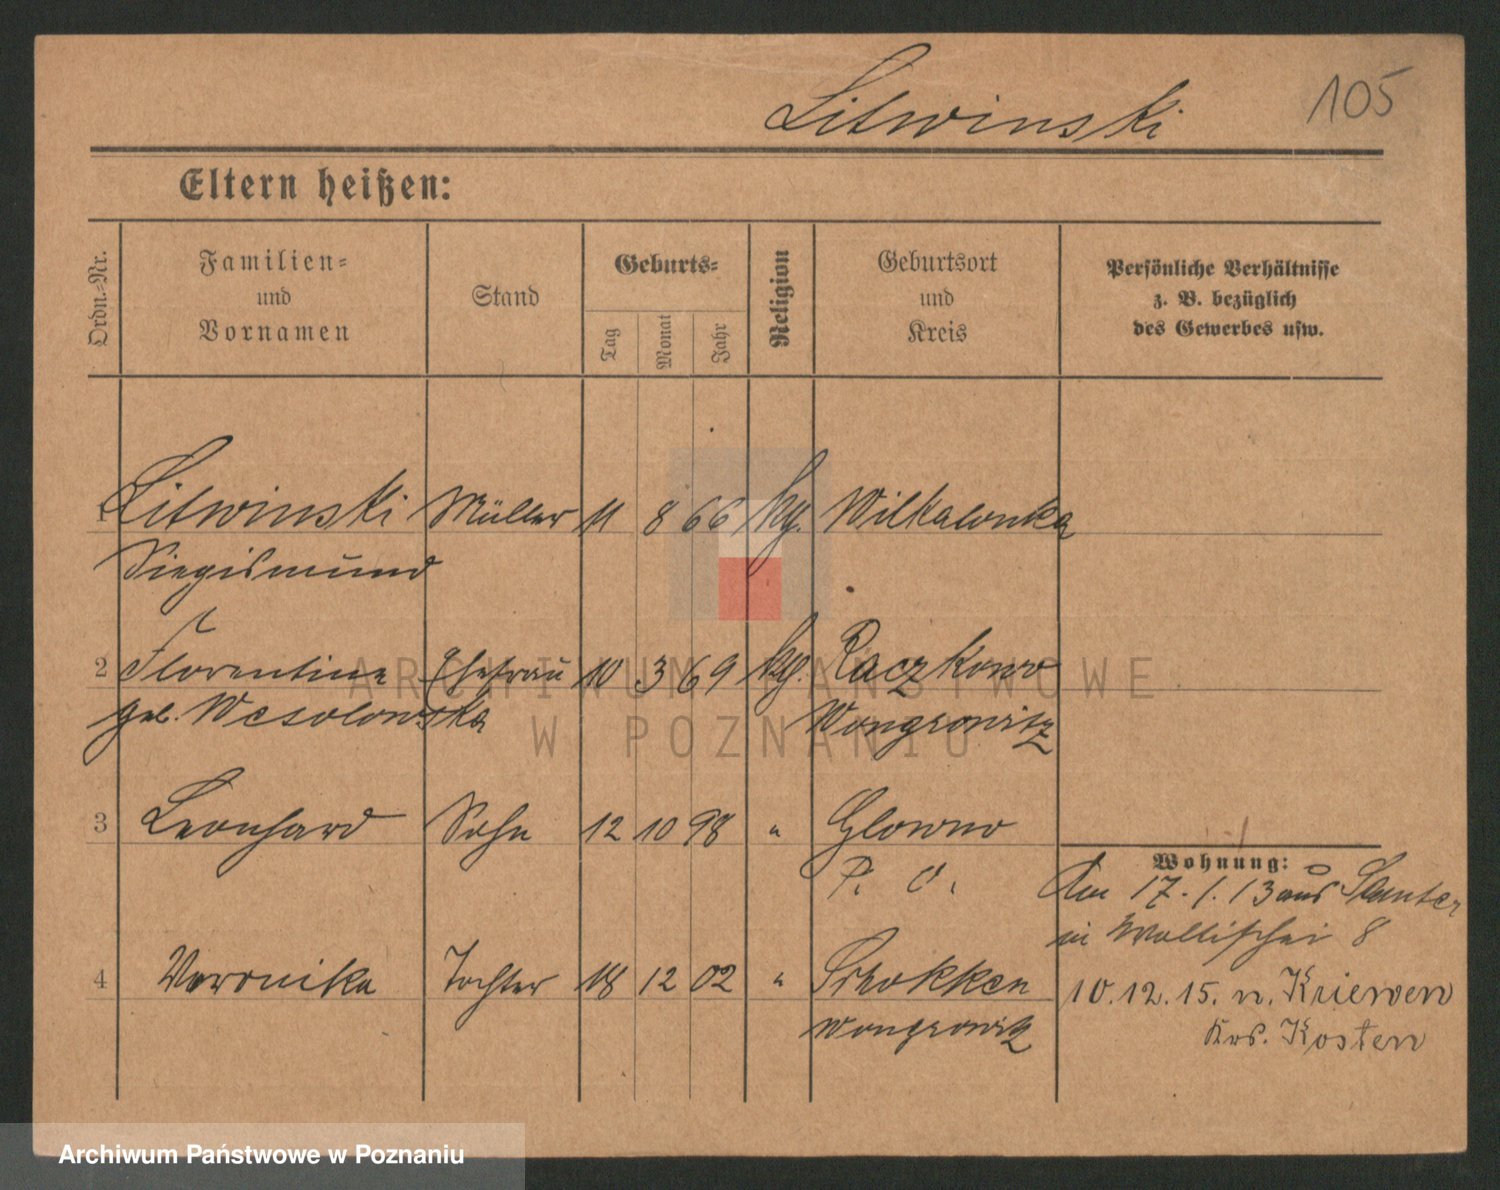 Litwinski 105
Eltern heißen:
Ordn.-Nr.
Familien-
und
Vornamen
Stand
Geburts-
Tag
Monat
Jahr
Religion
Geburtsort
und
Kreis
Persönliche Verhältnisse
z. B. bezüglich
des Gewerbes usw.
1 Litwinski Müller 11 8 66 kg. Wilkalonka
Siegismund
2 Florentine Ehefrau 10 3 69 kg. Raczkowo
geb. Wesolowska Wongrowitz
3 Leonhard Sohn 12 10 98 " Glowno
P. O.
Wohnung:
Am 17.1.13 aus
in Wallischei 8
4 Veronika Tochter 18 12 02 " Schokken
Wongrowitz
10.12.15. n. Kriewen
Krs. Kosten
ARCHIWUM PAŃSTWOWE
W POZNANIU
Archiwum Państwowe w Poznaniu